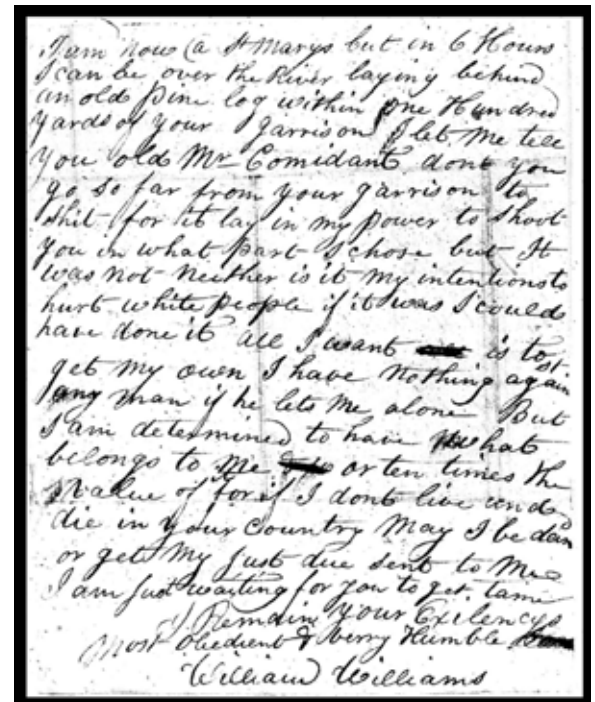 I am now (a St Marys but in 6 Hours
I can be over the River laying behind
an old pine log within one Hundred
yards of your garrison let me tell
you old Mr Comidant dont you
go so far from your garrison to
shit for it lay in my power to shoot
you in what part I chose but It
was not neither is it my intentions to
hurt white people if it was I could
have done it all I want is to
get my own I have nothing against
any man if he lets me alone But
I am determined to have what
belongs to me or ten times the
value of it for if I dont live and
die in your Country may I be damd
or get my just due sent to me
I am just waiting for you to get tame
I Remain your Exilencys
most obedient & verry Humble
William Williams